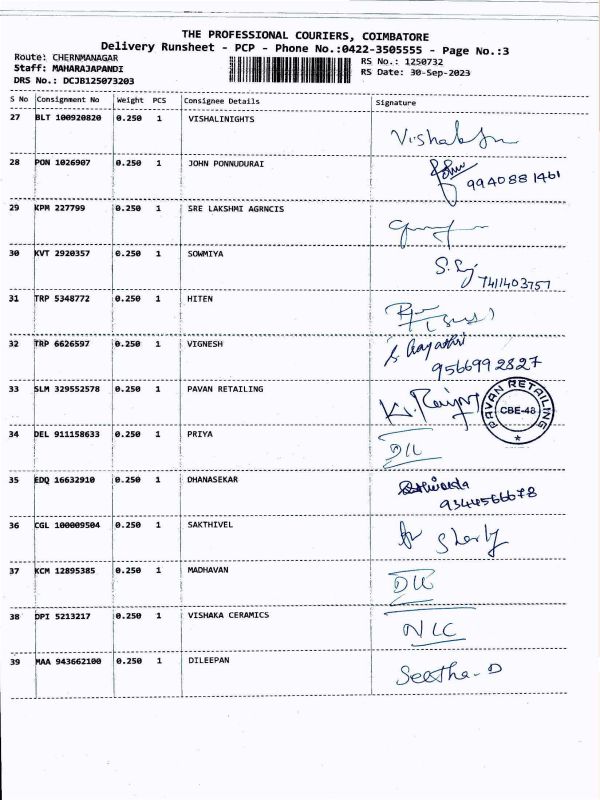 THE PROFESSIONAL COURIERS, COIMBATORE
Delivery Runsheet - PCP - Phone No.:0422-3505555 - Page No.:3
Route: CHERNMANAGAR
Staff: MAHARAJAPANDI
DRS No.: DCJB125073203
RS No.: 1250732
RS Date: 30-Sep-2023
S No Consignment No Weight PCS Consignee Details Signature
27 BLT 100920820 0.250 1 VISHALINIGHTS
28 PON 1026907 0.250 1 JOHN PONNUDURAI
9940881461
29 KPM 227799 0.250 1 SRE LAKSHMI AGRNCIS
30 KVT 2920357 0.250 1 SOWMIYA
7411403757
31 TRP 5348772 0.250 1 HITEN
32 TRP 6626597 0.250 1 VIGNESH
9566992827
33 SLM 329552578 0.250 1 PAVAN RETAILING
PAVAN RETAILING
CBE-48
34 DEL 911158633 0.250 1 PRIYA
35 EDQ 16632910 0.250 1 DHANASEKAR
9344566678
36 CGL 100009504 0.250 1 SAKTHIVEL
37 KCM 12895385 0.250 1 MADHAVAN
38 DPI 5213217 0.250 1 VISHAKA CERAMICS
39 MAA 943662100 0.250 1 DILEEPAN
Seetha-D